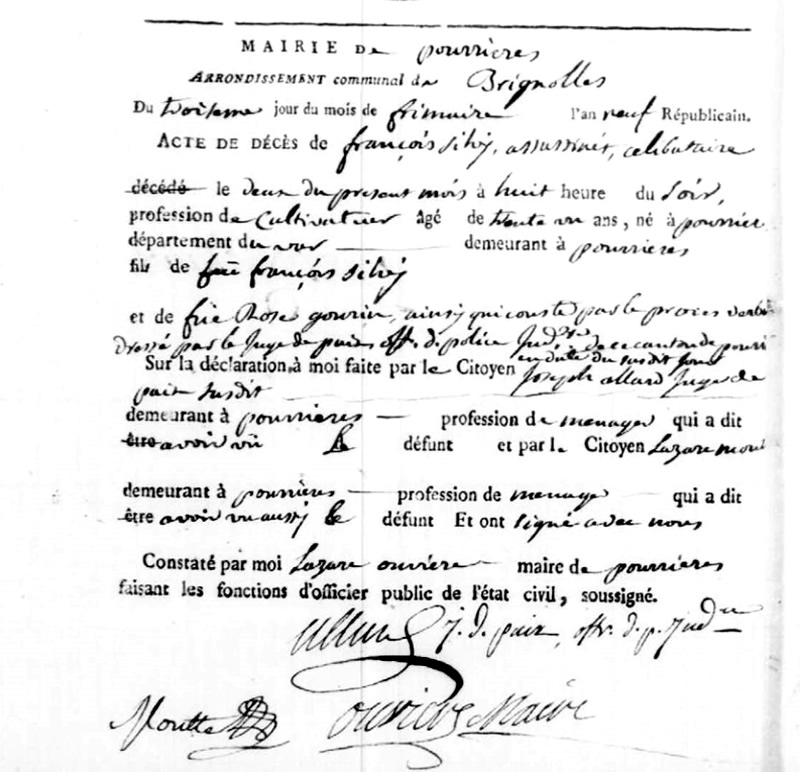 MAIRIE De pourrieres
ARRONDISSEMENT communal de Brignolles
Du troiseme jour du mois de frimaire l'an neuf Républicain.
ACTE DE DÉCÈS de françois silvy, assassinét, celibataire
décédé le deux du present mois à huit heure du soir,
profession de Cultivateur âgé de trente un ans, né à pourrier
département du var demeurant à pourrieres
fils de feu françois silvy
et de feüe Rose gourin, ainsy qui conste par le proces verbal
Dressé par le Juge de paix off. d. police Jud.re de ce canton de pourri
en date du susdit jour
Sur la déclaration à moi faite par le Citoyen Joseph allard Juge de
paix susdit
demeurant à pourrieres profession de menager qui a dit
être avoir vü le défunt et par le Citoyen Lazare mout
demeurant à pourrières profession de menager qui a dit
être avoir vu aussy le défunt Et ont signé avec nous
Constaté par moi Lazare ouvière maire de pourrieres
faisant les fonctions d'officier public de l'état civil, soussigné.
allard J. d. paix, off. d. p. Jud.re
Moutte ouviere Maire